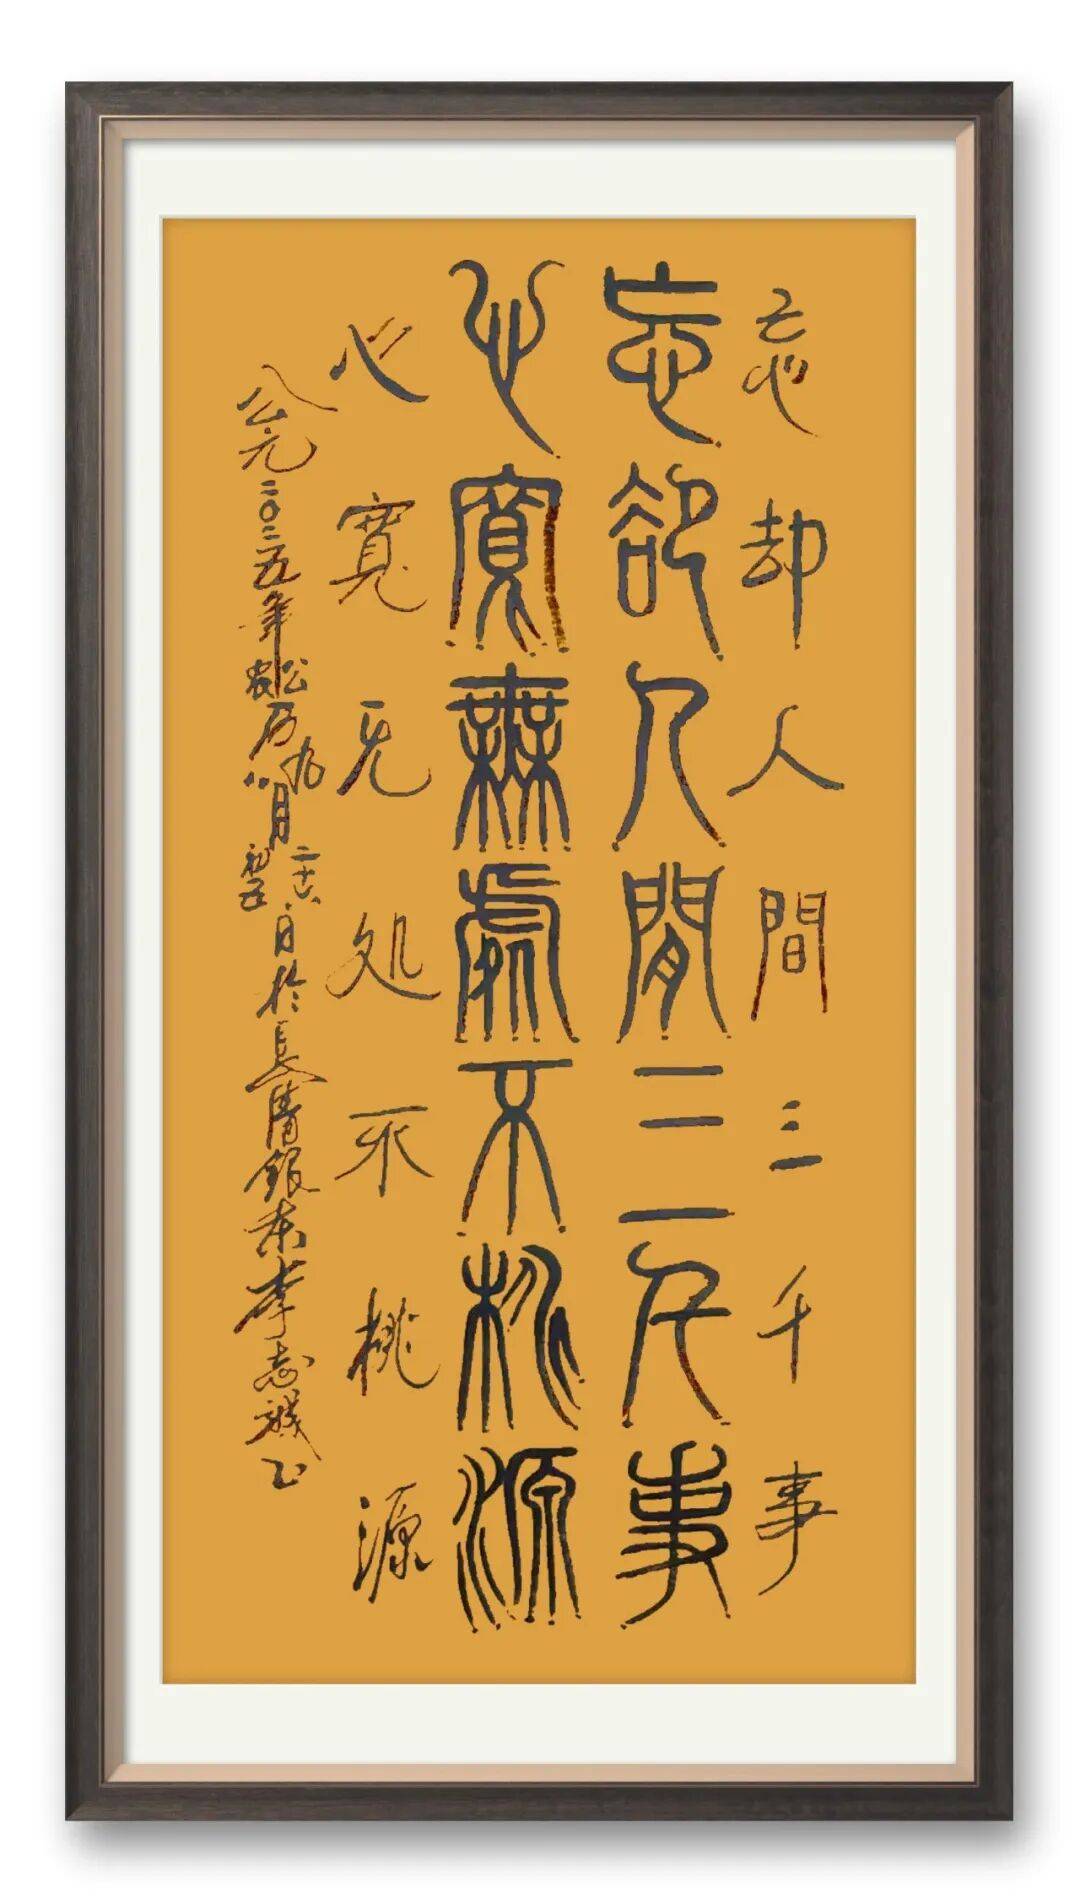 忘却人間三千事
忘卻人閒三千事
心寬無處不桃源
心寬无处不桃源
公元二〇二五年公历九月二十六日農八月初五於長清銀東李志 书